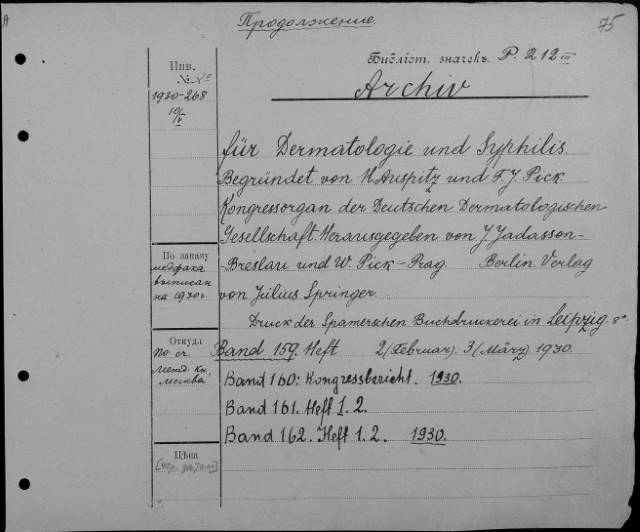 Продолженіе.
75
Библіот. значекъ. P. 212 III
Инв.
№№
1930-268
10/V
Archiv
für Dermatologie und Syphilis.
Begründet von H. Auspitz und F. J. Pick.
Kongressorgan der Deutschen Dermatologischen
Gesellschaft. Herausgegeben von J. Jadasson-
-Breslau und W. Pick-Prag. Berlin. Verlag
von Julius Springer
Druck der Spamerschen Buchdruckerei in Leipzig. 8°
По заказу
медфака
выписан
на 1930 г.
Откуда
по сч.
Межд. Кн.
Москва
Band 159. Heft 2 (Februar). 3 (März) 1930.
Band 160: Kongressbericht. 1930.
Band 161. Heft 1. 2.
Band 162. Heft 1. 2. 1930.
Цѣна